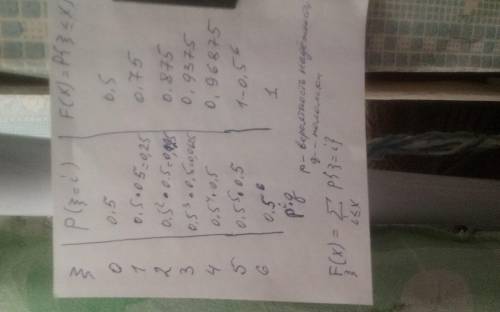 ξ | P(ξ=i) | F(x)=P{ξ≤x}
0 | 0.5 | 0.5
1 | 0.5*0.5=0,25 | 0.75
2 | 0.5²*0.5=0,125 | 0.875
3 | 0.5³*0,5=0,0625 | 0,9375
4 | 0.5⁴*0.5 | 0,96875
5 | 0.5⁵*0.5 | 1-0.5⁶
6 | 0.5⁶ | 1
pⁱ*q
p - вероятность надежного
q - поломки
F(x) = ∑ P{ξ=i}
ξ i≤x